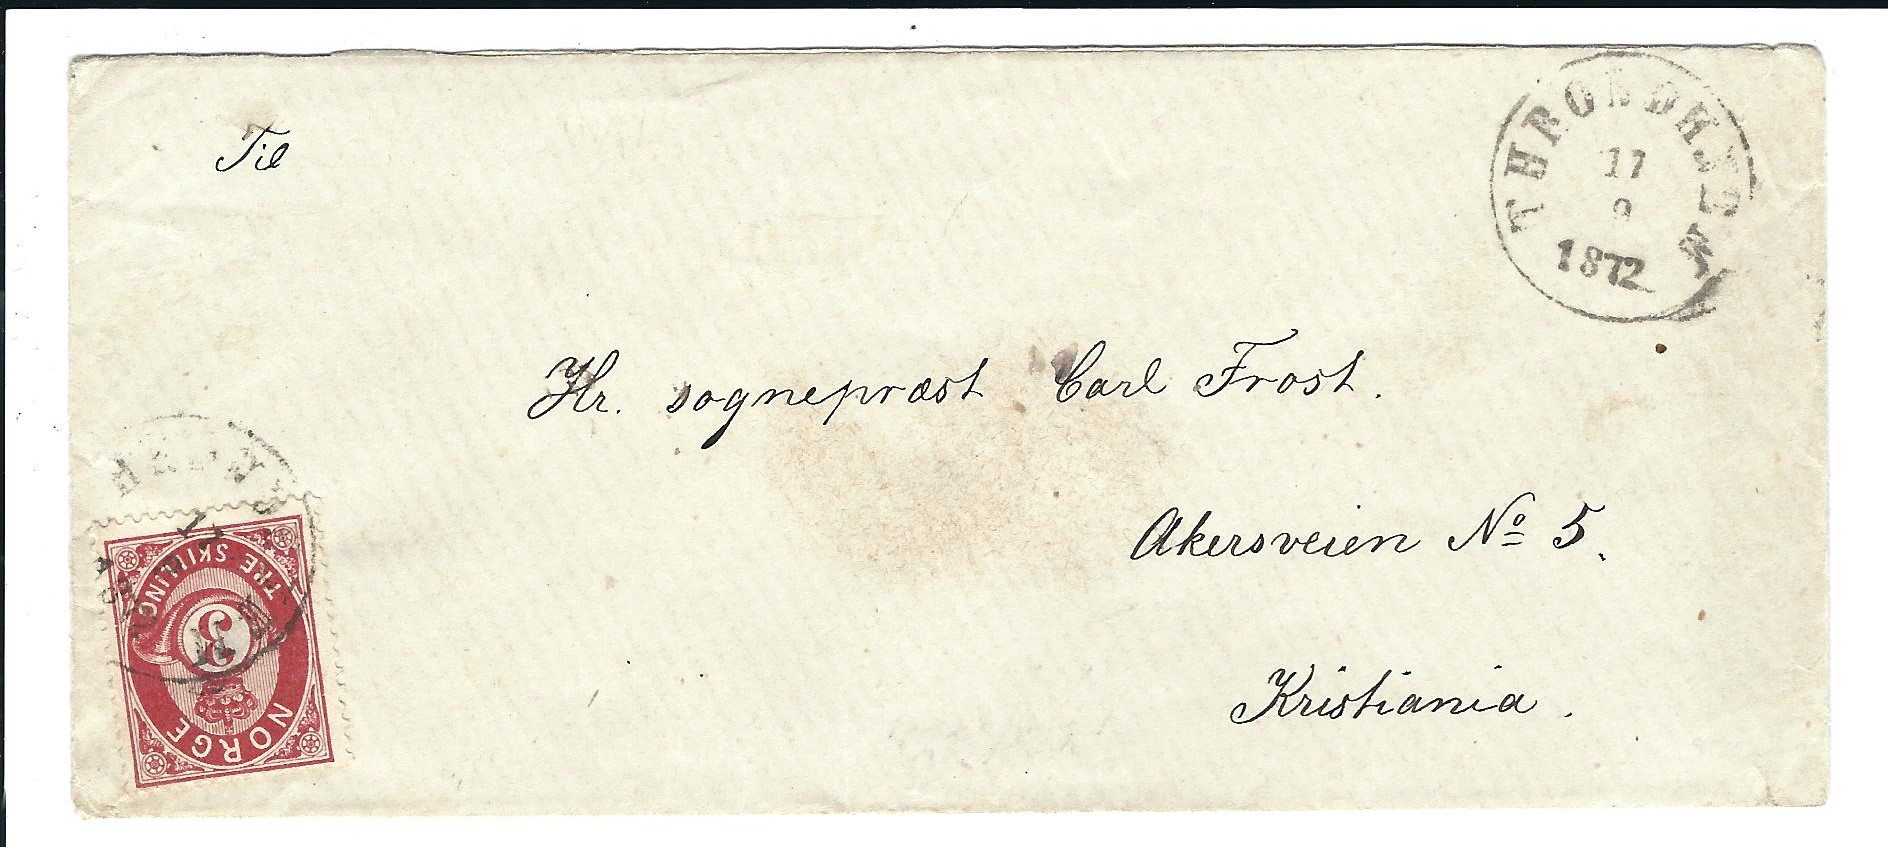 Til
THRONDHJEM
17
9
1872
Hr. sognepræst Carl Frost.
Akersveien No 5.
Kristiania.
TRE SKILLING
3
NORGE